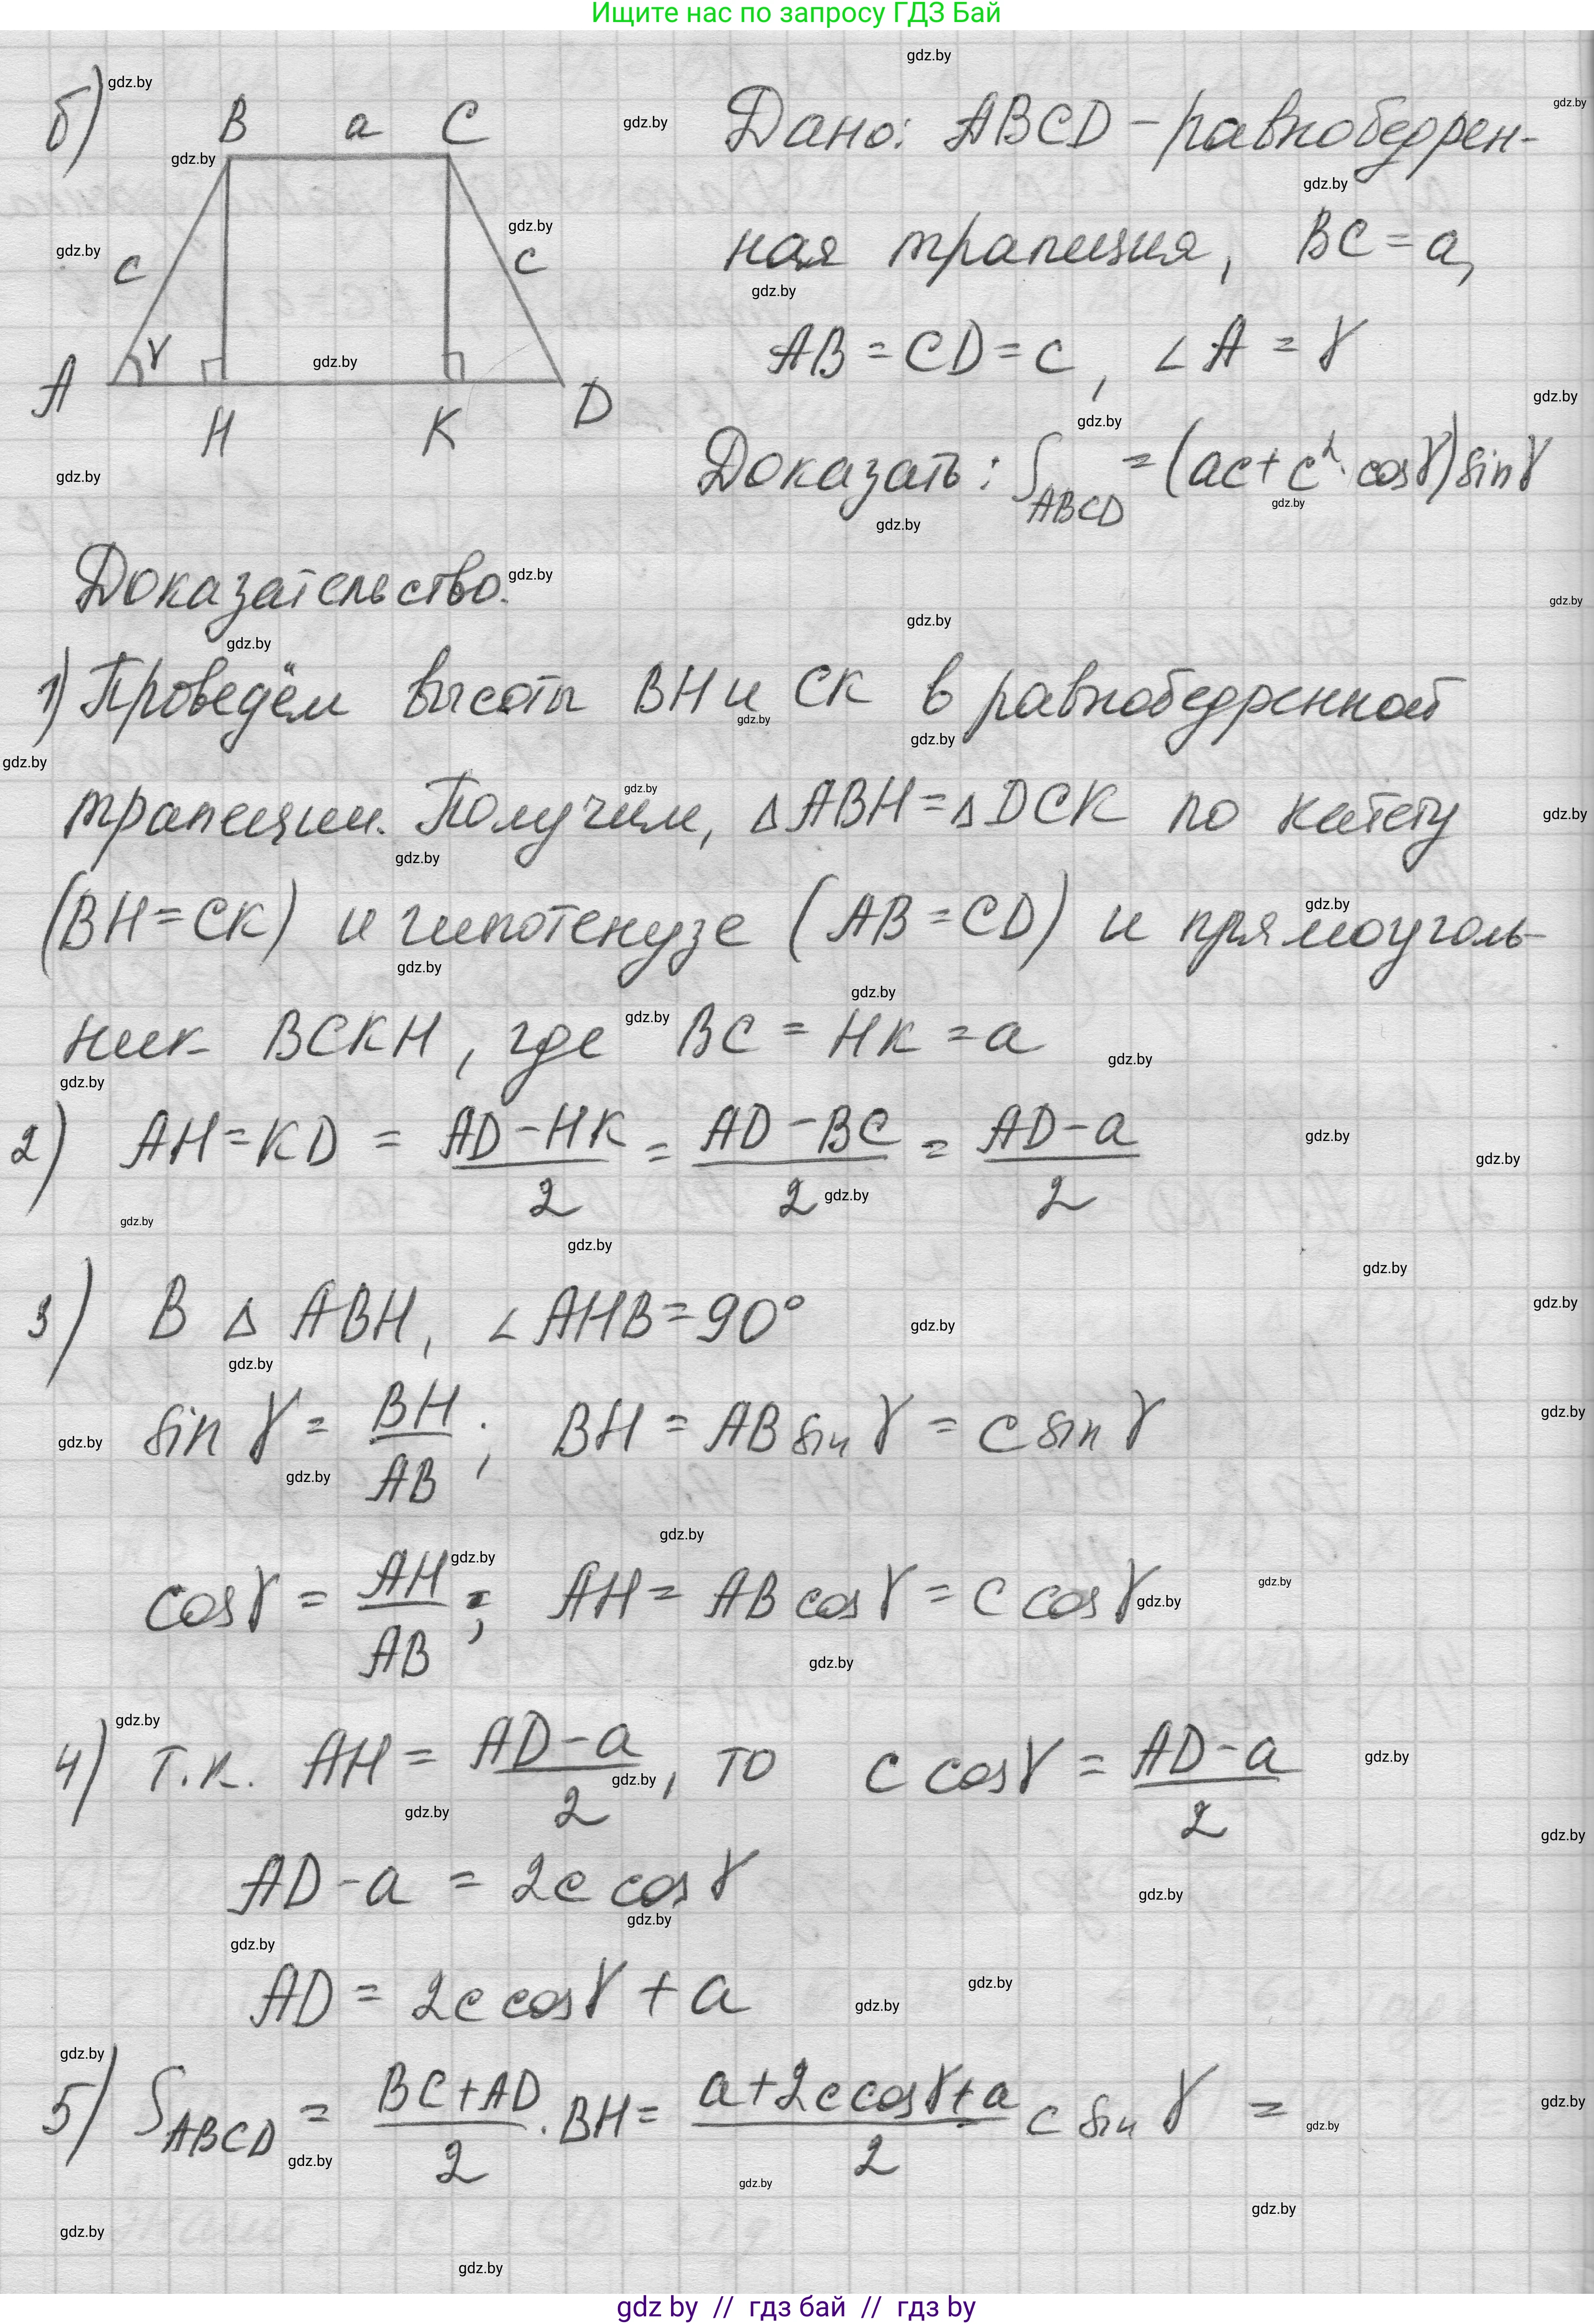 Ищите нас по запросу ГДЗ Бай
б) B a C
Дано: ABCD – равнобедрен-
ная трапеция, BC = a,
c c
AB = CD = c, ∠A = γ
A γ H K D
Доказать: S_ABCD = (ac + c²·cosγ) sinγ
Доказательство.
1) Проведём высоты BH и CK в равнобедренной
трапеции. Получим, △ABH = △DCK по катету
(BH = CK) и гипотенузе (AB = CD) и прямоуголь-
ник BCKH, где BC = HK = a
2) AH = KD = (AD – HK)/2 = (AD – BC)/2 = (AD – a)/2
3) В △ ABH, ∠AHB = 90°
sin γ = BH/AB; BH = AB sin γ = c sin γ
cos γ = AH/AB; AH = AB cos γ = c cos γ
4) т.к. AH = (AD – a)/2, то c cos γ = (AD – a)/2
AD – a = 2c cos γ
AD = 2c cos γ + a
5) S_ABCD = (BC + AD)/2 · BH = (a + 2c cos γ + a)/2 c sin γ =
gdz by // гдз бай // гдз by